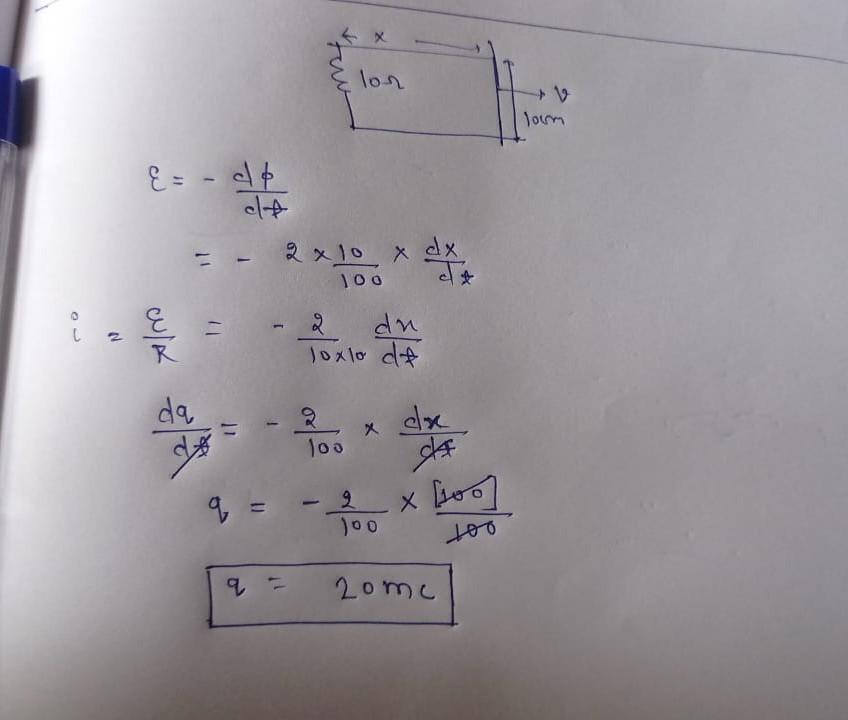 x
10Ω
v
10cm
ε = - dφ/dt
= - 2 × 10/100 × dx/dt
i = ε/R = - 2/10×10 dx/dt
dq/dt = - 2/100 × dx/dt
q = - 2/100 × [100]/100
q = 20mc